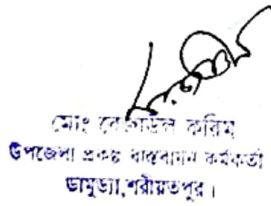 মোঃ রেজাউল করিম
উপজেলা প্রকল্প বাস্তবায়ন কর্মকর্তা
ডামুড্যা,শরীয়তপুর।